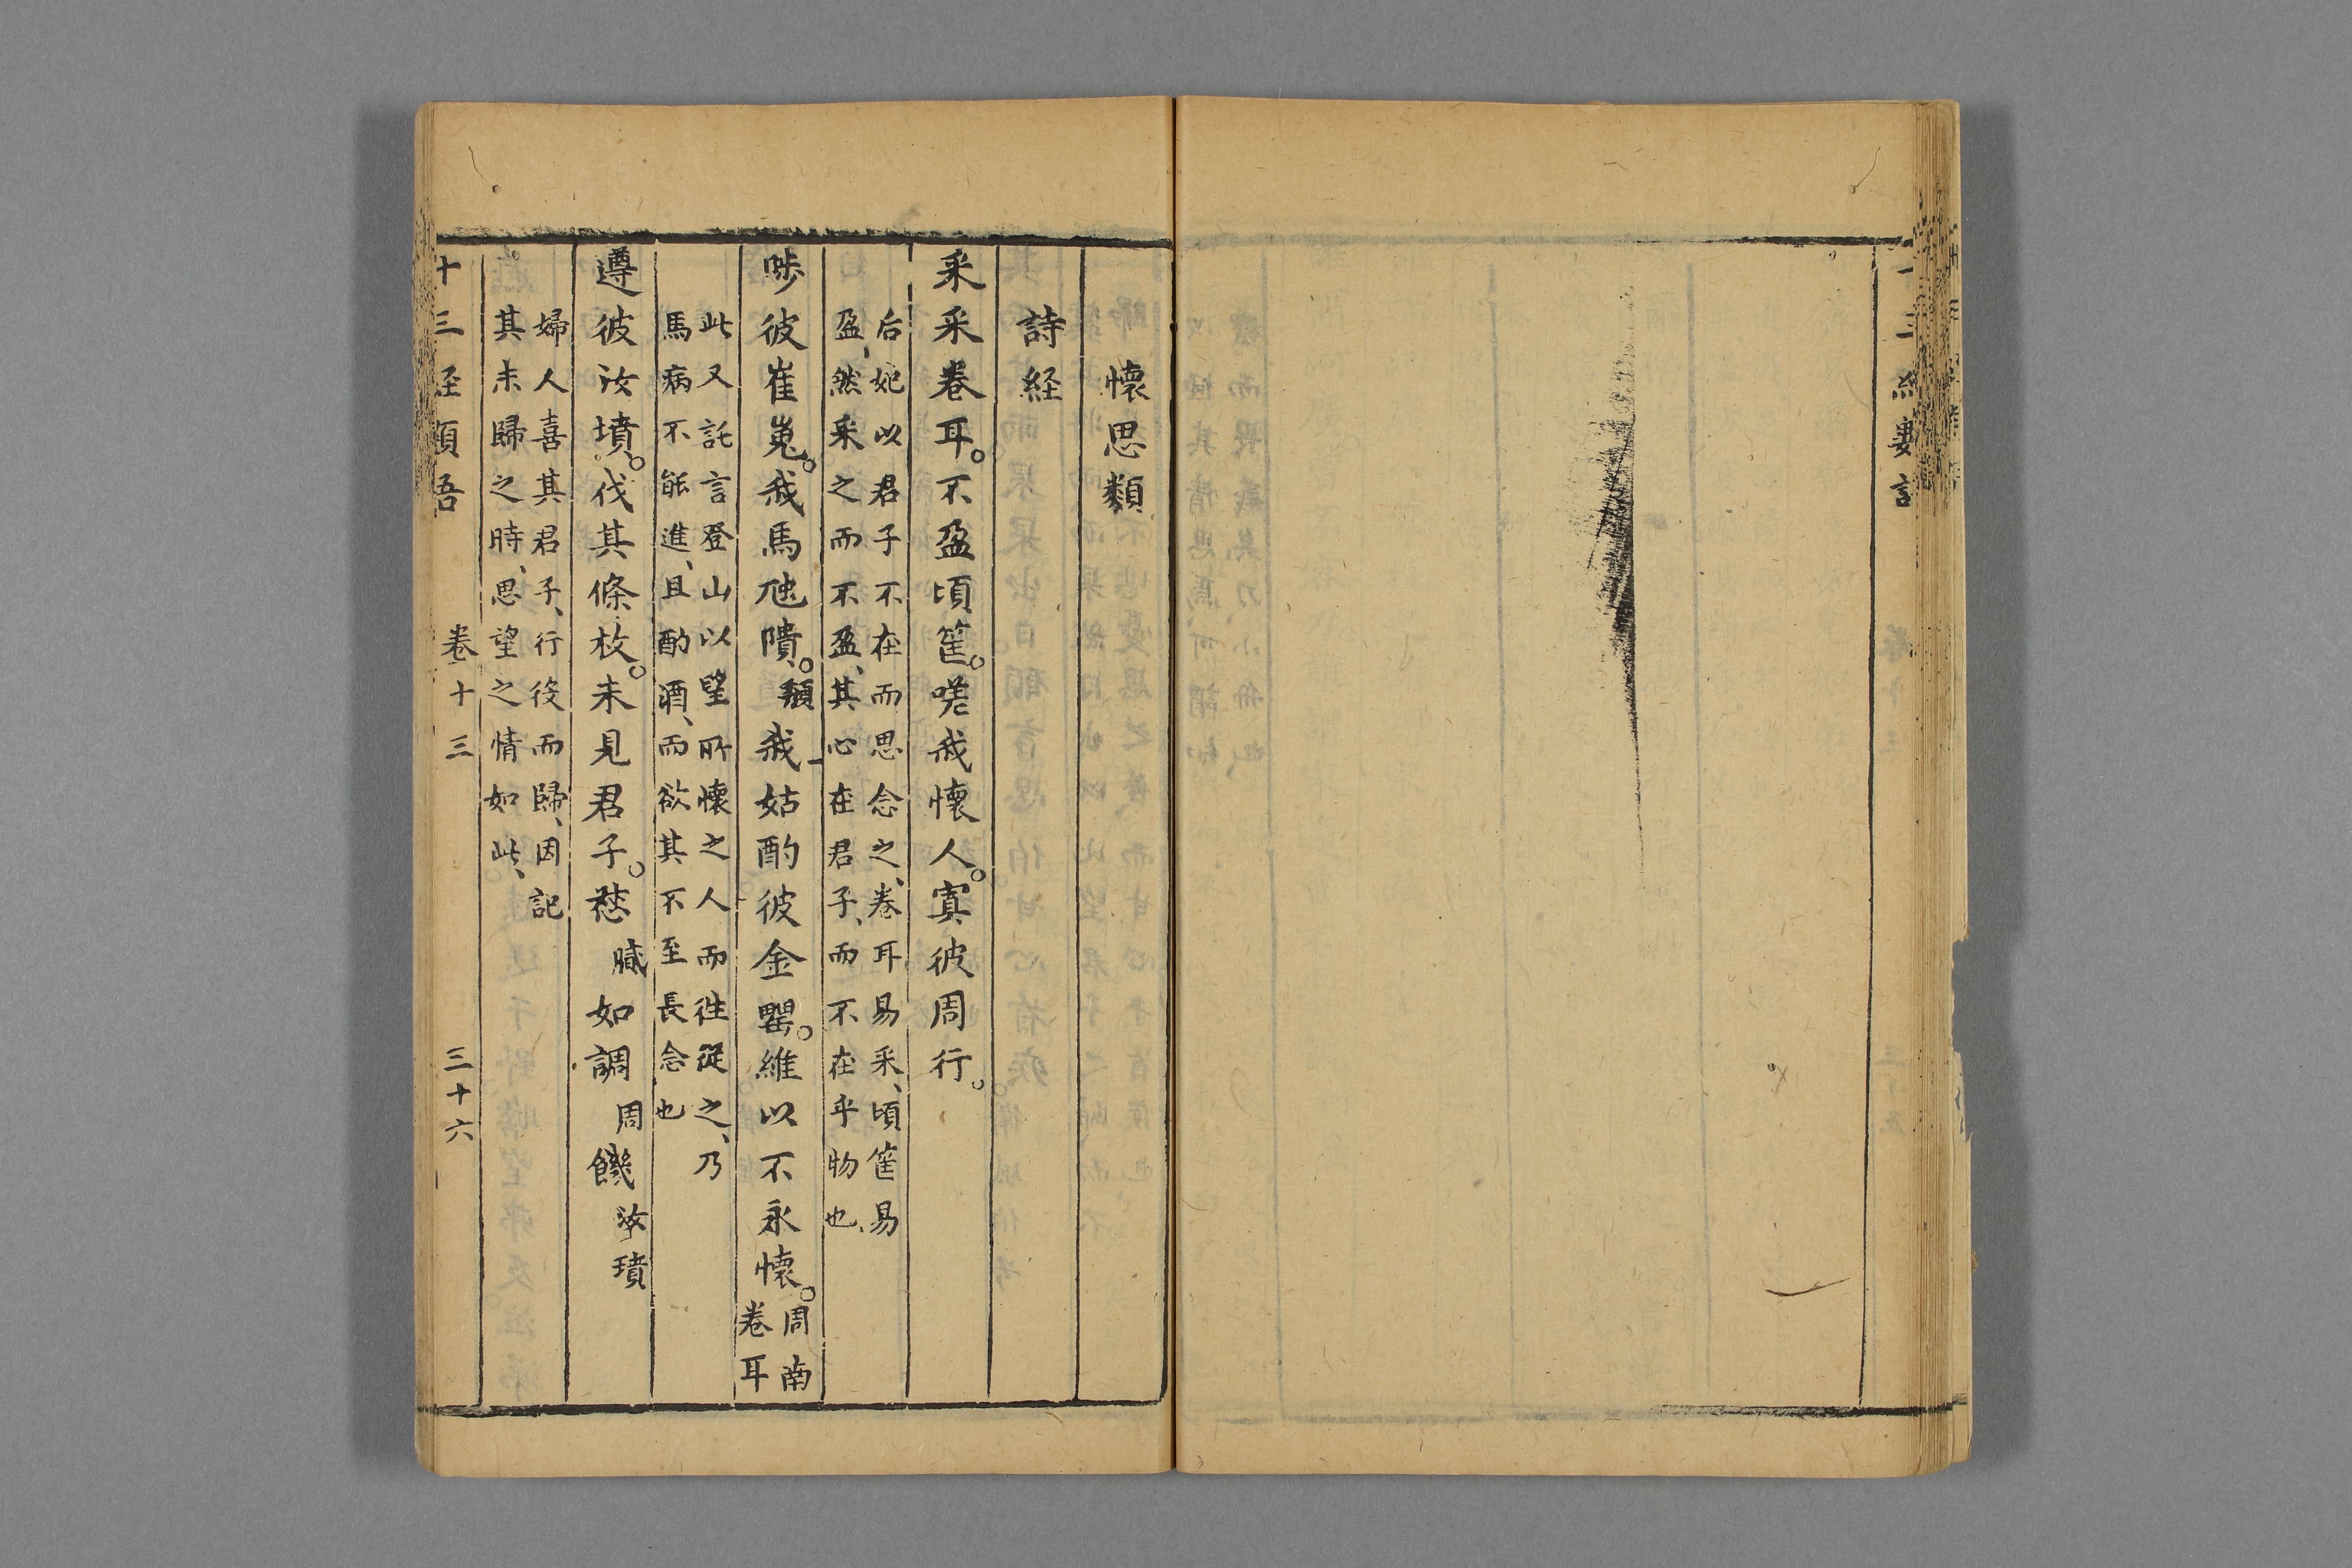 懷思類
詩経
采采卷耳。不盈頃筐。嗟我懷人。寘彼周行。
后妃以君子不在而思念之、卷耳易采、頃筐易
盈、然采之而不盈、其心在君子、而不在乎物也、
陟彼崔嵬。我馬虺隤。頽我姑酌彼金罍。維以不永懷。周南
卷耳
此又託言登山以望所懷之人而徃從之、乃
馬病不能進、且酌酒、而欲其不至長念也
遵彼汝墳。伐其條枚。未見君子。惄膩如調周饑汝墳
婦人喜其君子、行役而歸、因記
其未歸之時、思望之情如此、
卷十三
三十六